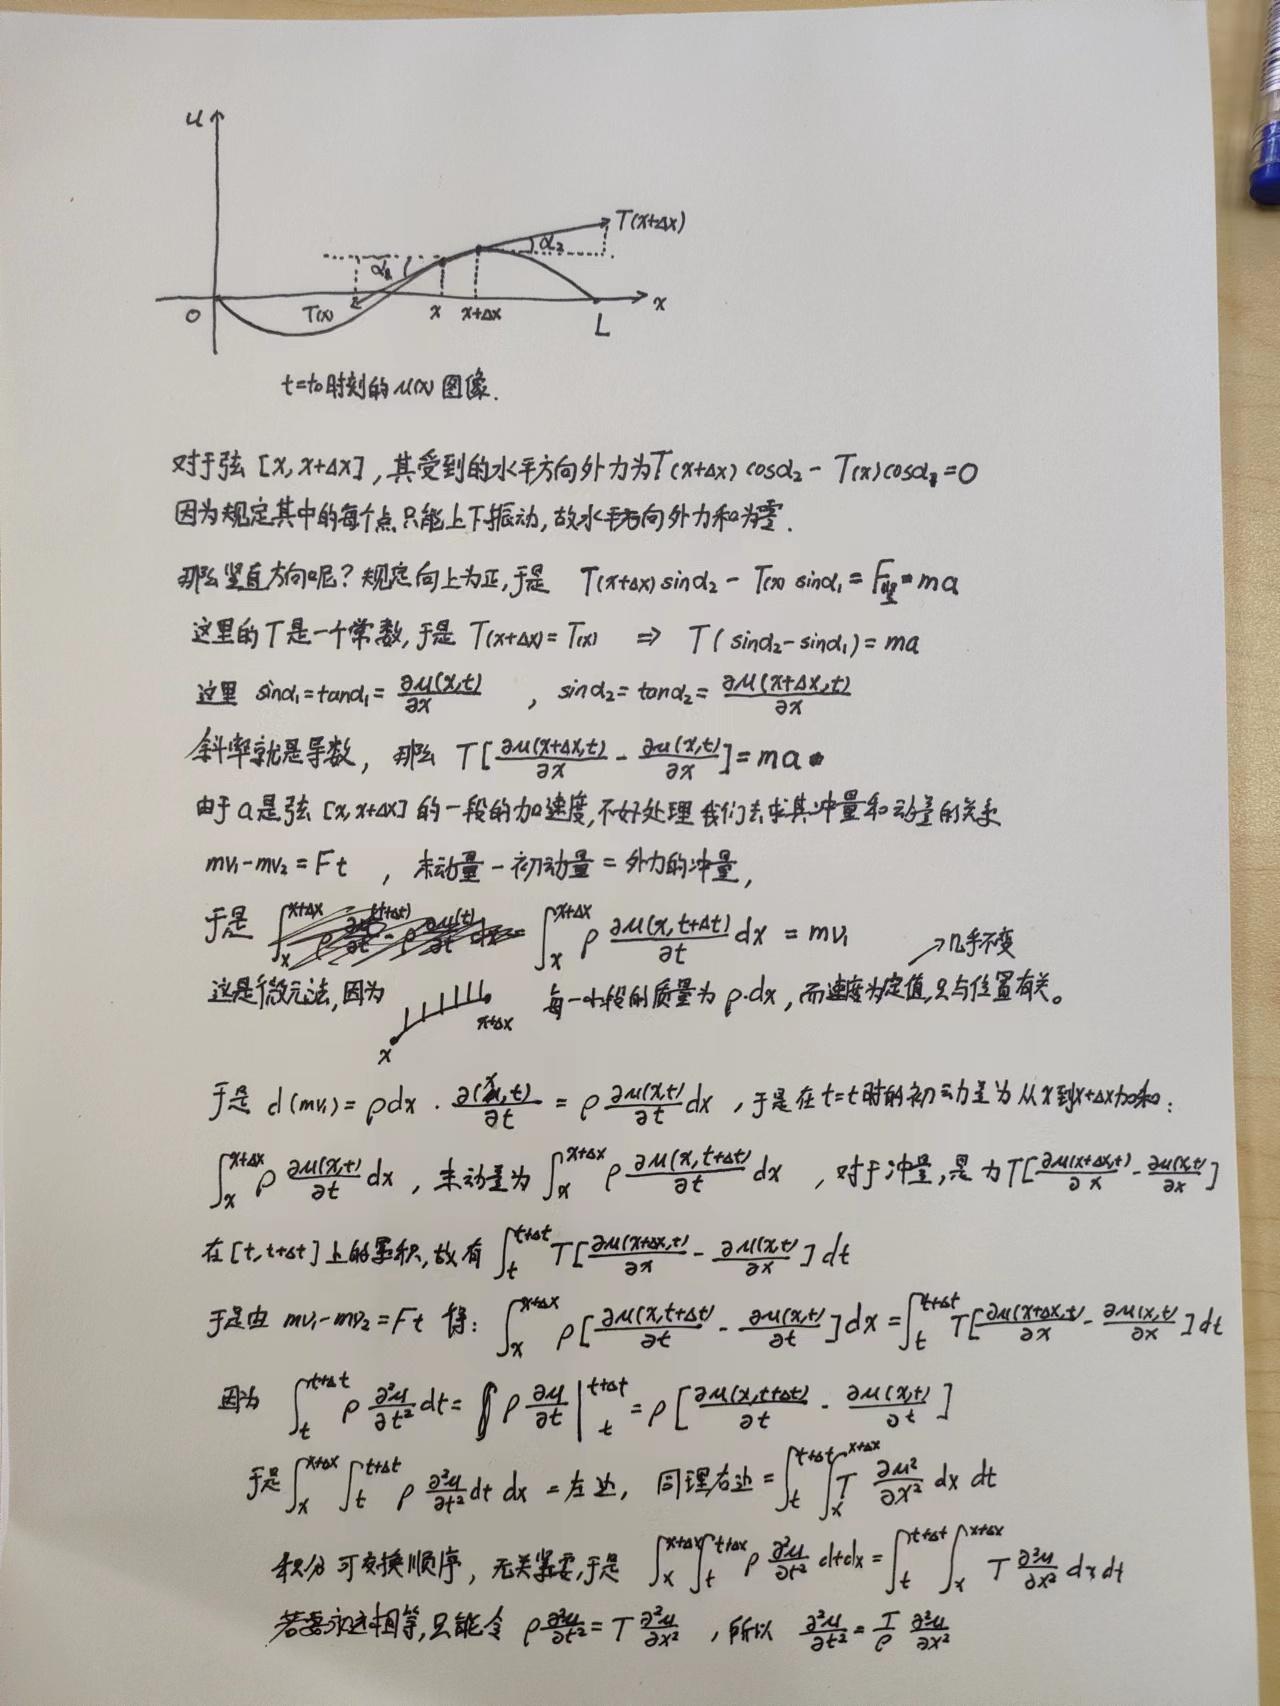 u
T(x+Δx)
α₂
α₁
T(x)
O
x
x+Δx
L
x
t=t₀时刻的u(x)图像.
对于弦[x, x+Δx], 其受到的水平方向外力为T(x+Δx)cosα₂ - T(x)cosα₁=0
因为规定其中的每个点只能上下振动, 故水平方向外力和为零.
那么竖直方向呢? 规定向上为正, 于是 T(x+Δx)sinα₂ - T(x)sinα₁ = F竖 = ma
这里的T是一个常数, 于是 T(x+Δx)=T(x) ⇒ T(sinα₂-sinα₁)=ma
这里 sinα₁=tanα₁=∂u(x,t)/∂x , sinα₂=tanα₂=∂u(x+Δx,t)/∂x
斜率就是导数, 那么 T[∂u(x+Δx,t)/∂x - ∂u(x,t)/∂x]=ma
由于a是弦[x,x+Δx]的一段的加速度, 不好处理 我们去求其冲量和动量的关系
mv₁-mv₂=Ft , 末动量-初动量=外力的冲量,
于是 ∫ₓ^(x+Δx) ρ ∂u(x,t+Δt)/∂t dx = mv₁
→几乎不变
这是微元法, 因为 x x+Δx 每一小段的质量为ρ·dx, 而速度为定值, 只与位置有关。
于是 d(mv₁)=ρdx·∂(x,t)/∂t = ρ ∂u(x,t)/∂t dx , 于是在t=t时的初动量为从x到x+Δx加和:
∫ₓ^(x+Δx) ρ ∂u(x,t)/∂t dx , 末动量为 ∫ₓ^(x+Δx) ρ ∂u(x,t+Δt)/∂t dx , 对于冲量, 是为T[∂u(x+Δx,t)/∂x - ∂u(x,t)/∂x]
在[t,t+Δt]上的累积, 故有 ∫ₜ^(t+Δt) T[∂u(x+Δx,t)/∂x - ∂u(x,t)/∂x]dt
于是由 mv₁-mv₂=Ft 得: ∫ₓ^(x+Δx) ρ[∂u(x,t+Δt)/∂t - ∂u(x,t)/∂t]dx = ∫ₜ^(t+Δt) T[∂u(x+Δx,t)/∂x - ∂u(x,t)/∂x]dt
因为 ∫ₜ^(t+Δt) ρ ∂²u/∂t² dt = ρ ∂u/∂t |ₜ^(t+Δt) = ρ[∂u(x,t+Δt)/∂t - ∂u(x,t)/∂t]
于是 ∫ₓ^(x+Δx) ∫ₜ^(t+Δt) ρ ∂²u/∂t² dt dx = 左边, 同理右边 = ∫ₜ^(t+Δt) ∫ₓ^(x+Δx) T ∂u²/∂x² dx dt
积分可交换顺序, 无关紧要, 于是 ∫ₓ^(x+Δx) ∫ₜ^(t+Δx) ρ ∂²u/∂t² dtdx = ∫ₜ^(t+Δt) ∫ₓ^(x+Δx) T ∂²u/∂x² dxdt
若要永远相等, 只能令 ρ ∂²u/∂t² = T ∂²u/∂x² , 所以 ∂²u/∂t² = T/ρ ∂²u/∂x²